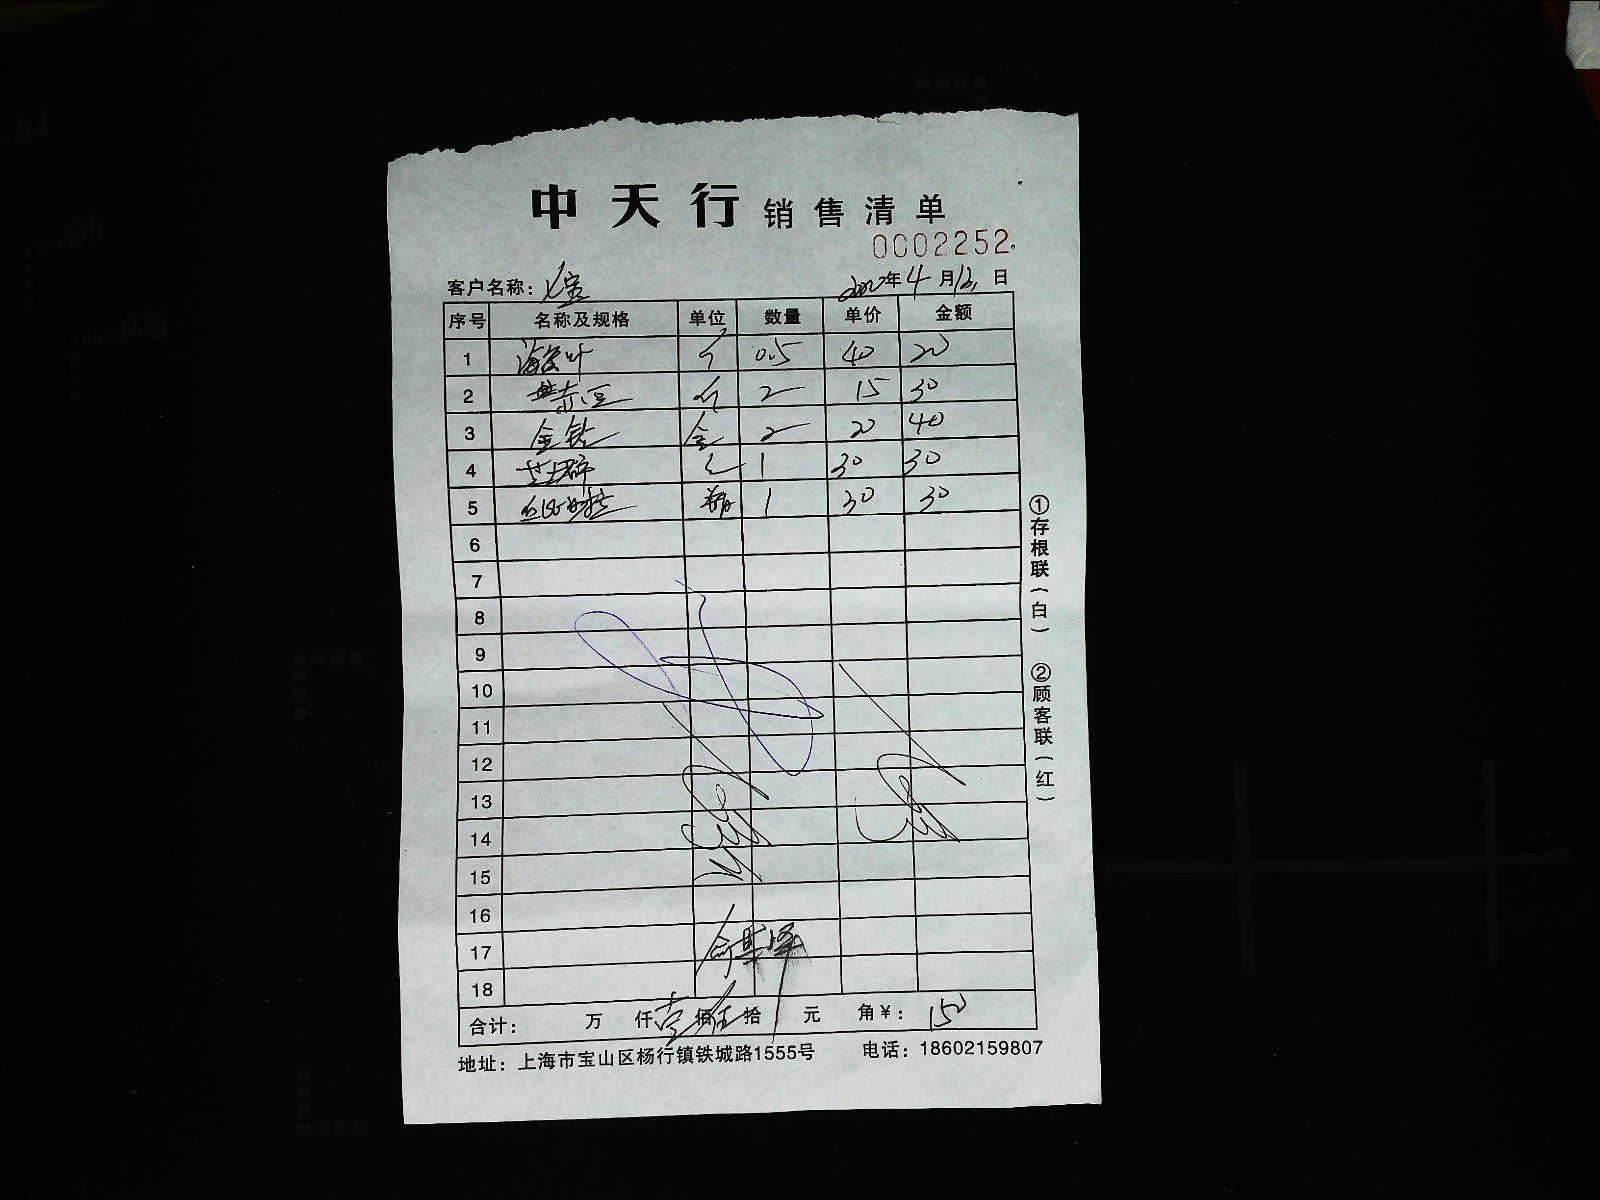 中天行 销售清单
0002252
客户名称: 七宝 年4月13日
序号 名称及规格 单位 数量 单价 金额
1 0.5 40 20
2 赤豆 2 15 30
3 金钻 2 20 40
4 1 30 30
5 1 30 30
6
7
8
9
10
11
12
13
14
15
16
17
18
合计: 万 仟 壹佰伍拾 元 角 ¥: 150
地址: 上海市宝山区杨行镇铁城路1555号 电话: 18602159807
①存根联(白) ②顾客联(红)